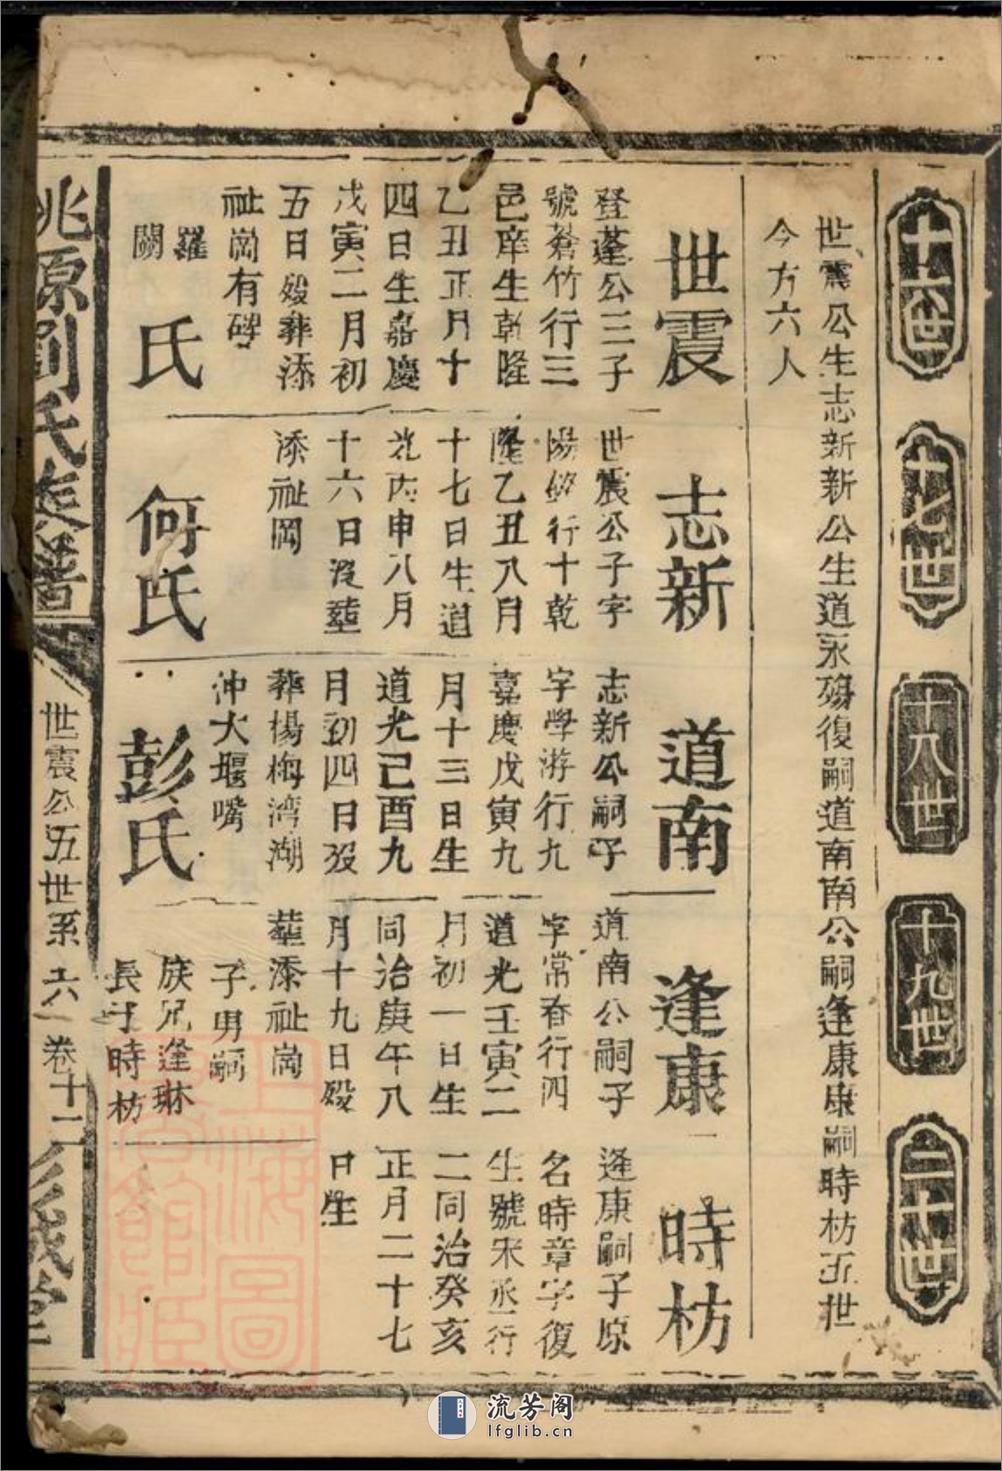 十六世
十七世
十八世
十九世
二十世
世震公生志新新公生道永殤復嗣道南南公嗣逢康康嗣時枋五世
今方六人
世震
登蓬公三子
號蒼竹行三
邑庠生乾隆
乙丑正月十
四日生嘉慶
戊寅二月初
五日歿葬添
祉崗有碑
羅
關
氏
志新
世震公子字
陽 行十乾
隆乙丑八月
十七日生道
光丙申八月
十六日沒塟
添祉岡
何氏
道南
志新公嗣子
字學游行九
嘉慶戊寅九
月十三日生
道光己酉九
月初四日歿
葬楊梅湾湖
沖大堰嘴
彭氏
逢康
道南公嗣子
字常春行四
道光壬寅二
月初一日生
同治庚午八
月十九日歿
塟添祉崗
子男嗣
族兄逢琳
長子時枋
時枋
逢康嗣子原
名時章字復
生號宋丞行
二同治癸亥
正月二十七
日生
桃源劉氏族譜
世震公五世系
六
卷十二
彭城堂
上海圖
書館藏
流芳阁
lfglib.cn